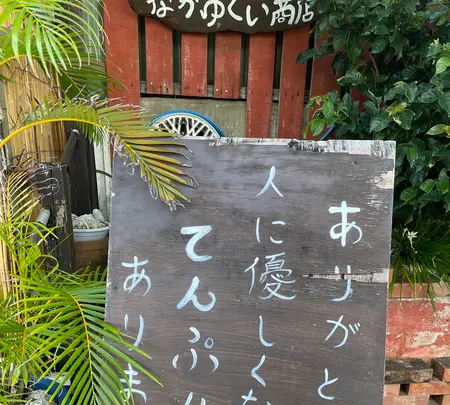 なかゆくい商店
ありがと
人に優しくな
てんぷら
ありま